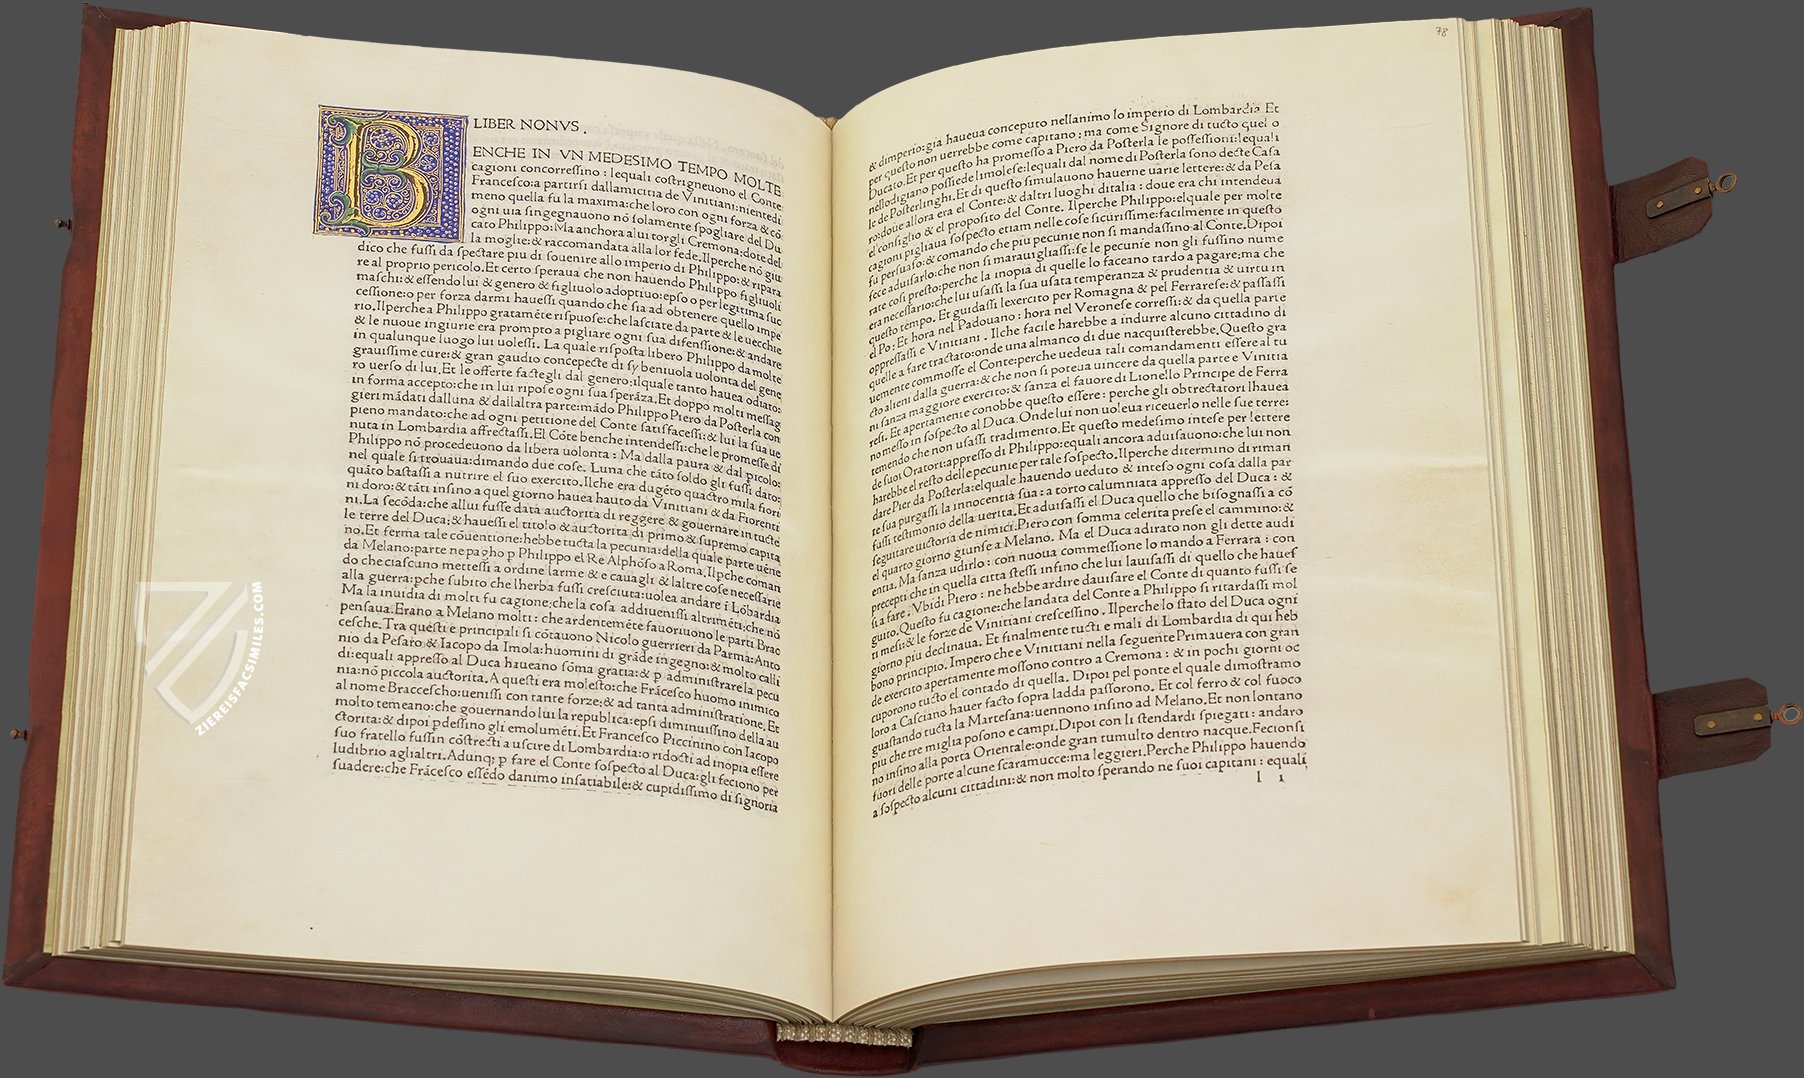 LIBER NONVS .
BENCHE IN VN MEDESIMO TEMPO MOLTE
cagioni concorreſſino : lequali coſtrigneuono el Conte
Franceſco:a partirſi dallamicitia de Vinitiani:nientedi
meno quella fu la maxima:che loro con ogni forza & cō
ogni uia ſingegnauono nō ſolamente ſpogliare del Du
cato Philippo: Ma anchora a lui torgli Cremona: dote del
la moglie: & raccomandata alla lor fede. Ilperche nō giu
dico che fuſſi da ſpectare piu di ſouenire allo imperio di Philippo: & ripara
re al proprio pericolo. Et certo ſperaua che non hauendo Philippo figliuoli
maſchi: & eſſendo lui & genero & figliuolo adoptiuo: epſo o per legitima ſuc
ceſſione: o per forza darmi haueſſi quando che ſia ad obtenere quello impe
rio. Ilperche a Philippo gratamēte riſpuoſe: che laſciate da parte & le uecchie
& le nuoue ingiurie era prompto a pigliare ogni ſua difenſione: & andare
in qualunque luogo lui uoleſſi. La quale riſpoſta libero Philippo da molte
grauiſſime cure: & gran gaudio concepecte di ſy beniuola uolonta del gene
ro uerſo di lui. Et le offerte factegli dal genero: ilquale tanto hauea odiato:
in forma accepto: che in lui ripoſe ogni ſua ſperāza. Et doppo molti meſſag
gieri mādati dalluna & dallaltra parte: mādo Philippo Piero da Poſterla con
pieno mandato: che ad ogni petitione del Conte ſatiſfaceſſi: & lui la ſua ue
nuta in Lombardia affrectaſſi. El Cōte benche intendeſſi: che le promeſſe di
Philippo nō procedeuono da libera uolonta : Ma dalla paura & dal picolo:
nel quale ſi trouaua: dimando due coſe. Luna che tāto ſoldo gli fuſſi dato:
quāto baſtaſſi a nutrire el ſuo exercito. Ilche era dugēto quactro mila fiori
ni doro: & tāti inſino a quel giorno hauea hauto da Vinitiani & da Fiorenti
ni. La ſecōda: che allui fuſſe data auctorita di reggere & gouernare in tucte
le terre del Duca: & haueſſi el titolo & auctorita di primo & ſupremo capita
no. Et ferma tale cōuentione: hebbe tucta la pecunia: della quale parte uēne
da Melano: parte ne pagho p Philippo el Re Alphōſo a Roma. Ilpche coman
do che ciaſcuno metteſſi a ordine larme & e cauagli & laltre coſe neceſſarie
alla guerra: pche ſubito che lherba fuſſi creſciuta: uolea andare i Lōbardia
Ma la inuidia di molti fu cagione: che la coſa addiueniſſi altrimēti: che nō
penſaua. Erano a Melano molti : che ardentemēte fauoriuono le parti Brac
ceſche. Tra queſti e principali ſi cōtauono Nicolo guerrieri da Parma: Anto
nio da Peſaro & Iacopo da Imola: huomini di grāde ingegno: & molto calli
di: equali appreſſo al Duca haueano ſōma gratia: & p adminiſtrare la pecu
nia: nō piccola auctorita. A queſti era moleſto: che Frāceſco huomo inimico
al nome Bracceſcho: ueniſſi con tante forze: & ad tanta adminiſtratione. Et
molto temeano: che gouernando lui la republica: epſi diminuiſſino della au
ctorita: & dipoi pdeſſino gli emolumēti. Et Franceſco Piccinino con Iacopo
ſuo fratello fuſſin cōſtrecti a uſcire di Lombardia: o ridocti ad inopia eſſere
ludibrio aglialtri. Adunq; p fare el Conte ſoſpecto al Duca: gli feciono per
ſuadere: che Frāceſco eſſēdo danimo inſatiabile: & cupidiſſimo di ſignoria
78
& dimperio: gia haueua conceputo nellanimo lo imperio di Lombardia Et
per queſto non uerrebbe come capitano : ma come Signore di tucto quel o
Ducato. Et per queſto ha promeſſo a Piero da Poſterla le poſſeſſioni: lequali
nello digniano poſſiede limoleſe: lequali dal nome di Poſterla ſono decte Caſa
le de Poſterlinghi. Et di queſto ſimulauono hauerne uarie lettere: & da Peſa
ro: doue allora era el Conte: & daltri luoghi ditalia : doue era chi intendeua
el conſiglio & el propoſito del Conte. Ilperche Philippo: elquale per molte
cagioni pigliaua ſoſpecto etiam nelle coſe ſicuriſſime: facilmente in queſto
fu perſuaſo: & comando che piu pecunie non ſi mandaſſino al Conte. Dipoi
fece aduiſarlo: che non ſi marauigliaſſi: ſe le pecunie non gli fuſſino nume
rate coſi preſto: perche la inopia di quelle lo faceano tardo a pagare: ma che
era neceſſario: che lui uſaſſi la ſua uſata temperanza & prudentia & uirtu in
queſto tempo. Et guidaſſi lexercito per Romagna & pel Ferrareſe: & paſſaſſi
el Po: Et hora nel Padouano : hora nel Veroneſe correſſi: & da quella parte
oppreſſaſſi e Vinitiani . Ilche facile harebbe a indurre alcuno cittadino di
quelle a fare tractato: onde una almanco di due nacquiſterebbe. Queſto gra
uemente commoſſe el Conte: perche uedeua tali comandamenti eſſere al tu
cto alieni dalla guerra: & che non ſi poteua uincere da quella parte e Vinitia
ni ſanza maggiore exercito: & ſanza el fauore di Lionello Principe de Ferra
reſi. Et apertamente conobbe queſto eſſere : perche gli obtrectatori lhauea
no meſſo in ſoſpecto al Duca. Onde lui non uoleua riceuerlo nelle ſue terre:
temendo che non uſaſſi tradimento. Et queſto medeſimo inteſe per lettere
de ſuoi Oratori: appreſſo di Philippo: equali ancora aduiſauono: che lui non
harebbe el reſto delle pecunie per tale ſoſpecto. Ilperche ditermino di riman
dare Pier da Poſterla: elquale hauendo ueduto & inteſo ogni coſa dalla par
te ſua purgaſſi la innocentia ſua : a torto calumniata appreſſo del Duca : &
fuſſi teſtimonio della uerita. Et aduiſaſſi el Duca quello che biſognaſſi a cō
ſeguitare uictoria de nimici. Piero con ſomma celerita preſe el cammino: &
el quarto giorno giunſe a Melano. Ma el Duca adirato non gli dette audi
entia. Ma ſanza udirlo : con nuoua commeſſione lo mando a Ferrara : con
precepti: che in quella citta ſteſſi inſino che lui lauiſaſſi di quello che haueſ
ſi a fare . Vbidi Piero : ne hebbe ardire dauiſare el Conte di quanto fuſſi ſe
guito. Queſto fu cagione: che landata del Conte a Philippo ſi ritardaſſi mol
ti meſi: & le forze de Vinitiani creſceſſino . Ilperche lo ſtato del Duca ogni
giorno piu declinaua. Et finalmente tucti e mali di Lombardia di qui heb
bono principio. Impero che e Vinitiani nella ſeguente Primauera con gran
de exercito apertamente moſſono contro a Cremona : & in pochi giorni oc
cuporono tucto el contado di quella. Dipoi pel ponte el quale dimoſtramo
loro a Caſciano hauer facto ſopra ladda paſſorono. Et col ferro & col fuoco
guaſtando tucta la Marteſana: uennono inſino ad Melano. Et non lontano
piu che tre miglia poſono e campi. Dipoi con li ſtendardi ſpiegati : andaro
no inſino alla porta Orientale: onde gran tumulto dentro nacque. Fecionſi
fuori delle porte alcune ſcaramucce: ma leggieri. Perche Philippo hauendo
a ſoſpecto alcuni cittadini: & non molto ſperando ne ſuoi capitani : equali
l i
ZIEREISFACSIMILES.COM